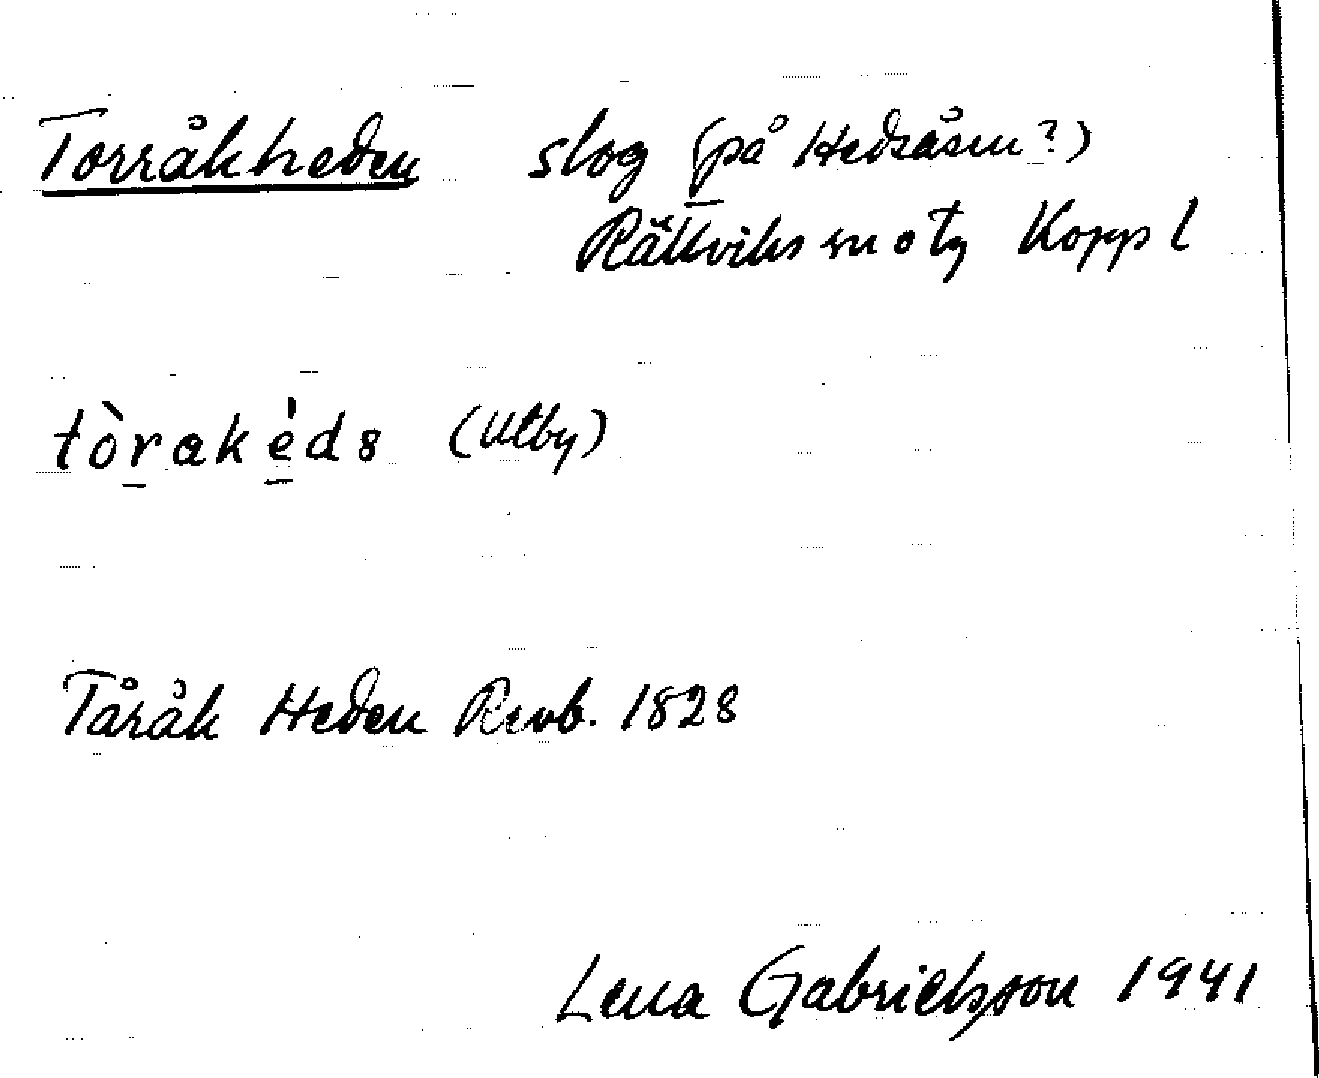 Torråkheden slog (på Hedsåsen?)
Rättviks sn o tg Kopp l
tòrakèds (Utby)
Tåråk Heden Revb. 1828
Lena Gabrielsson 1941